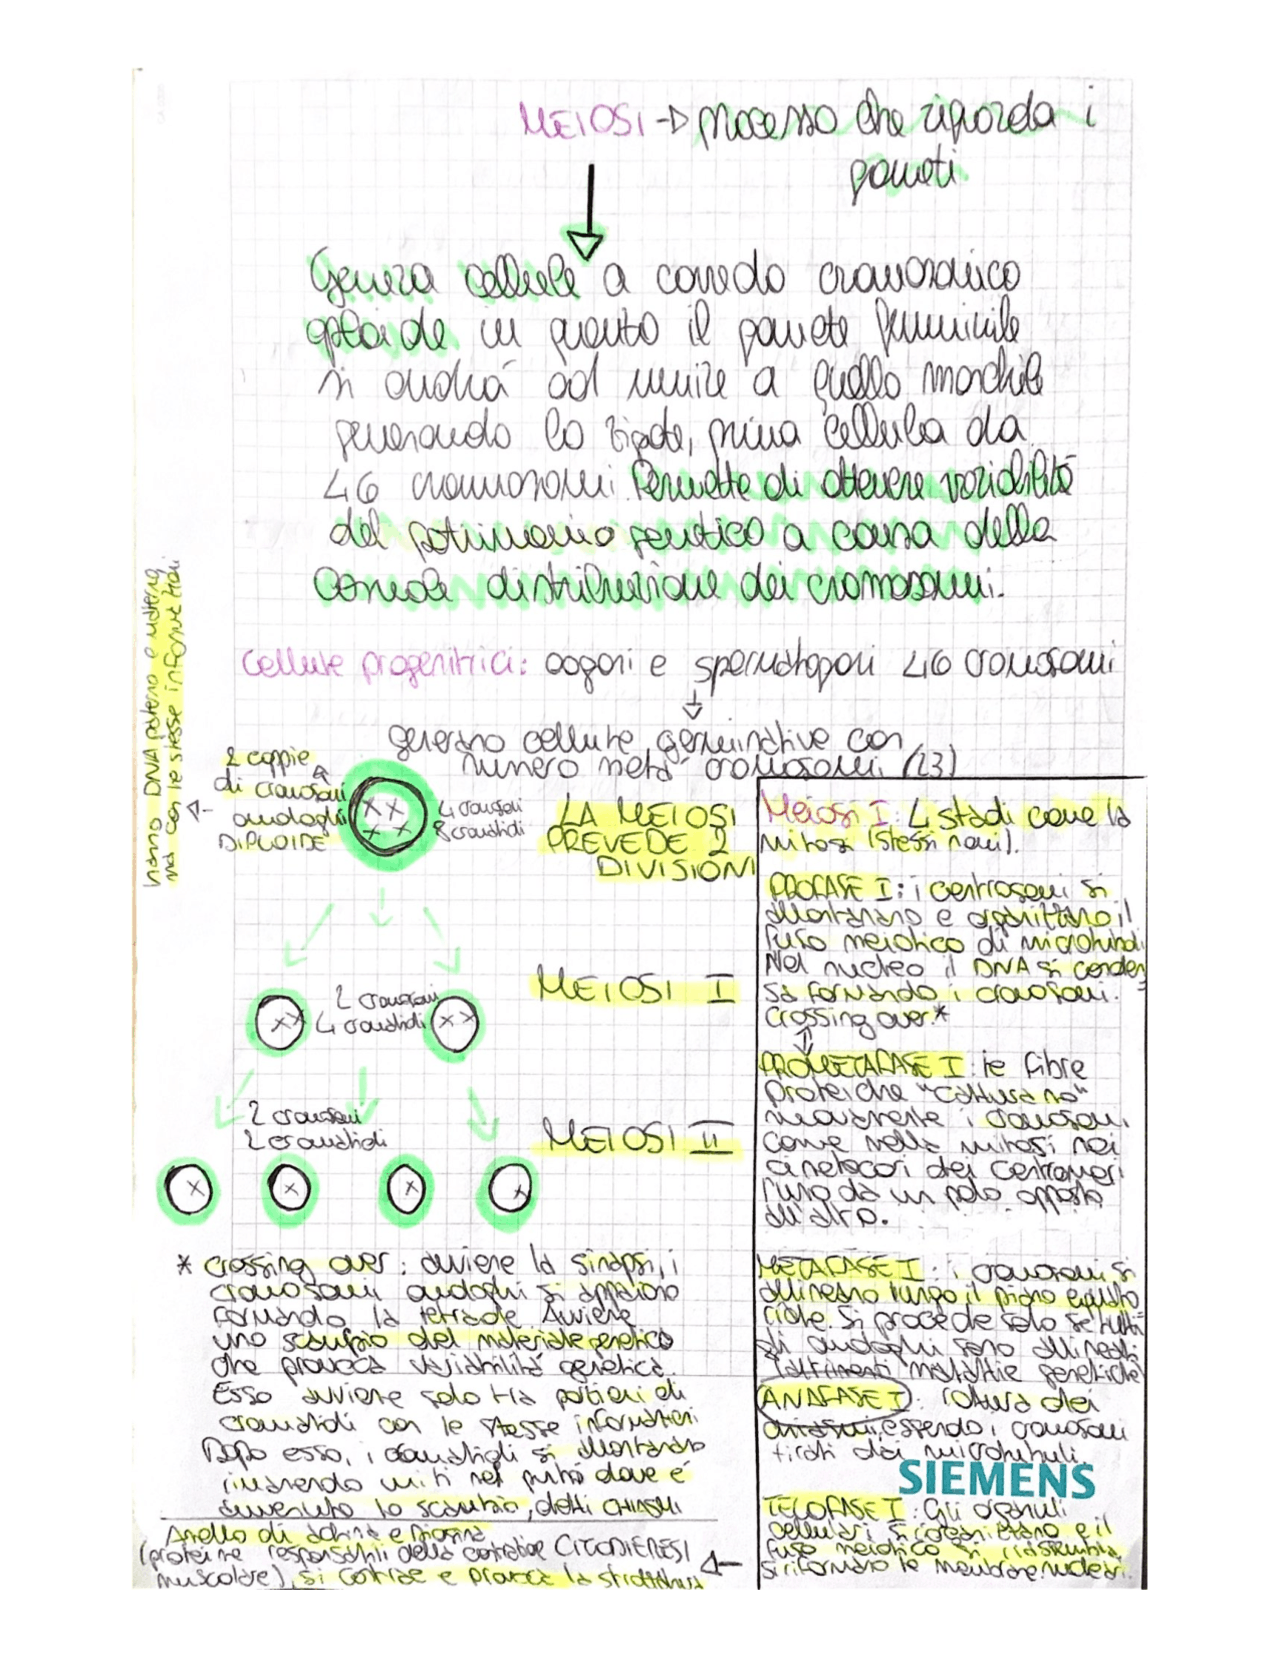 MEIOSI → processo che riguarda i
gameti
Genera cellule a corredo cromosomico
aploide in quanto il gamete femminile
si andrá ad unire a quello maschile
generando lo zigote, prima cellula da
46 cromosomi. Permette di ottenere variabilitá
del patrimonio genetico a causa della
casuale distribuzione dei cromosomi.
cellule progenitrici: oogoni e spermatogoni 46 cromosomi
generano cellule germinative con
numero metá cromosomi (23)
hanno DNA paterno e materno
ma con le stesse informazioni
2 coppie
di cromosomi
omologhi
DIPLOIDE
4 cromosomi
8 cromatidi
LA MEIOSI
PREVEDE 2
DIVISIONI
MEIOSI I
2 cromosomi
4 cromatidi
MEIOSI II
2 cromosomi
2 cromatidi
* crossing over: avviene la sinapsi, i
cromosomi omologhi si appaiono
formando la tetrade. Avviene
uno scambio del materiale genetico
che provoca variabilitá genetica.
Esso avviene solo tra porzioni di
cromatidi con le stesse informazioni
Dopo esso, i cromatidi si allontanano
rimanendo uniti nel punto dove é
avvenuto lo scambio, detti CHIASMI
Anello di actina e miosina
(proteine responsabili della contrazione CITODIERESI
muscolare), si contrae e provoca la strozzatura
Meiosi I: 4 stadi come la
mitosi (stessi nomi).
PROFASE I: i centrosomi si
allontanano e organizzano il
fuso meiotico di microtubuli
Nel nucleo il DNA si conden
sa formando i cromosomi.
crossing over.*
PROMETAFASE I: le fibre
proteiche "catturano"
nuovamente i cromosomi
come nella mitosi nei
cinetocori dei centromeri
l'uno da un polo opposto
all'altro.
METAFASE I: i cromosomi si
allineano lungo il piano equato
riale. Si procede solo se tutti
gli omologhi sono allineati
(altrimenti malattie genetiche)
ANAFASE I: rottura dei
chiasmi, essendo i cromosomi
tirati dai microtubuli.
SIEMENS
TELOFASE I: Gli organuli
cellulari si riorganizzano e il
fuso meiotico si
si riformano le membrane nucleari.